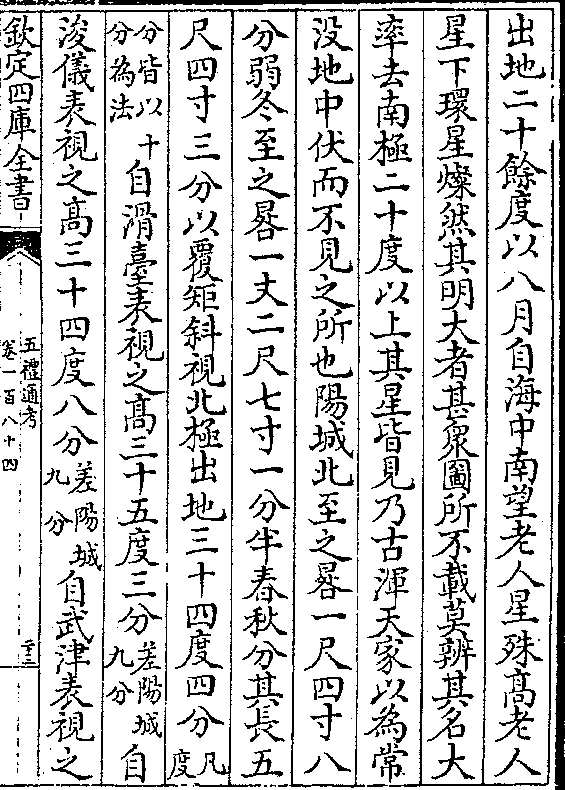 出地二十餘度以八月自海中南望老人星殊髙老人
星下環星燦然其明大者甚衆圖所不載莫辨其名大
率去南極二十度以上其星皆見乃古渾天家以為常
没地中伏而不見之所也陽城北至之晷一尺四寸八
分弱冬至之晷一丈二尺七寸一分半春秋分其長五
尺四寸三分以覆矩斜視北極出地三十四度四分凡度
分皆以十分為法自滑臺表視之髙三十五度三分差陽城九分自
浚儀表視之髙三十四度八分差陽城九分自武津表視之
欽定四庫全書
五禮通考
卷一百八十四
二十三